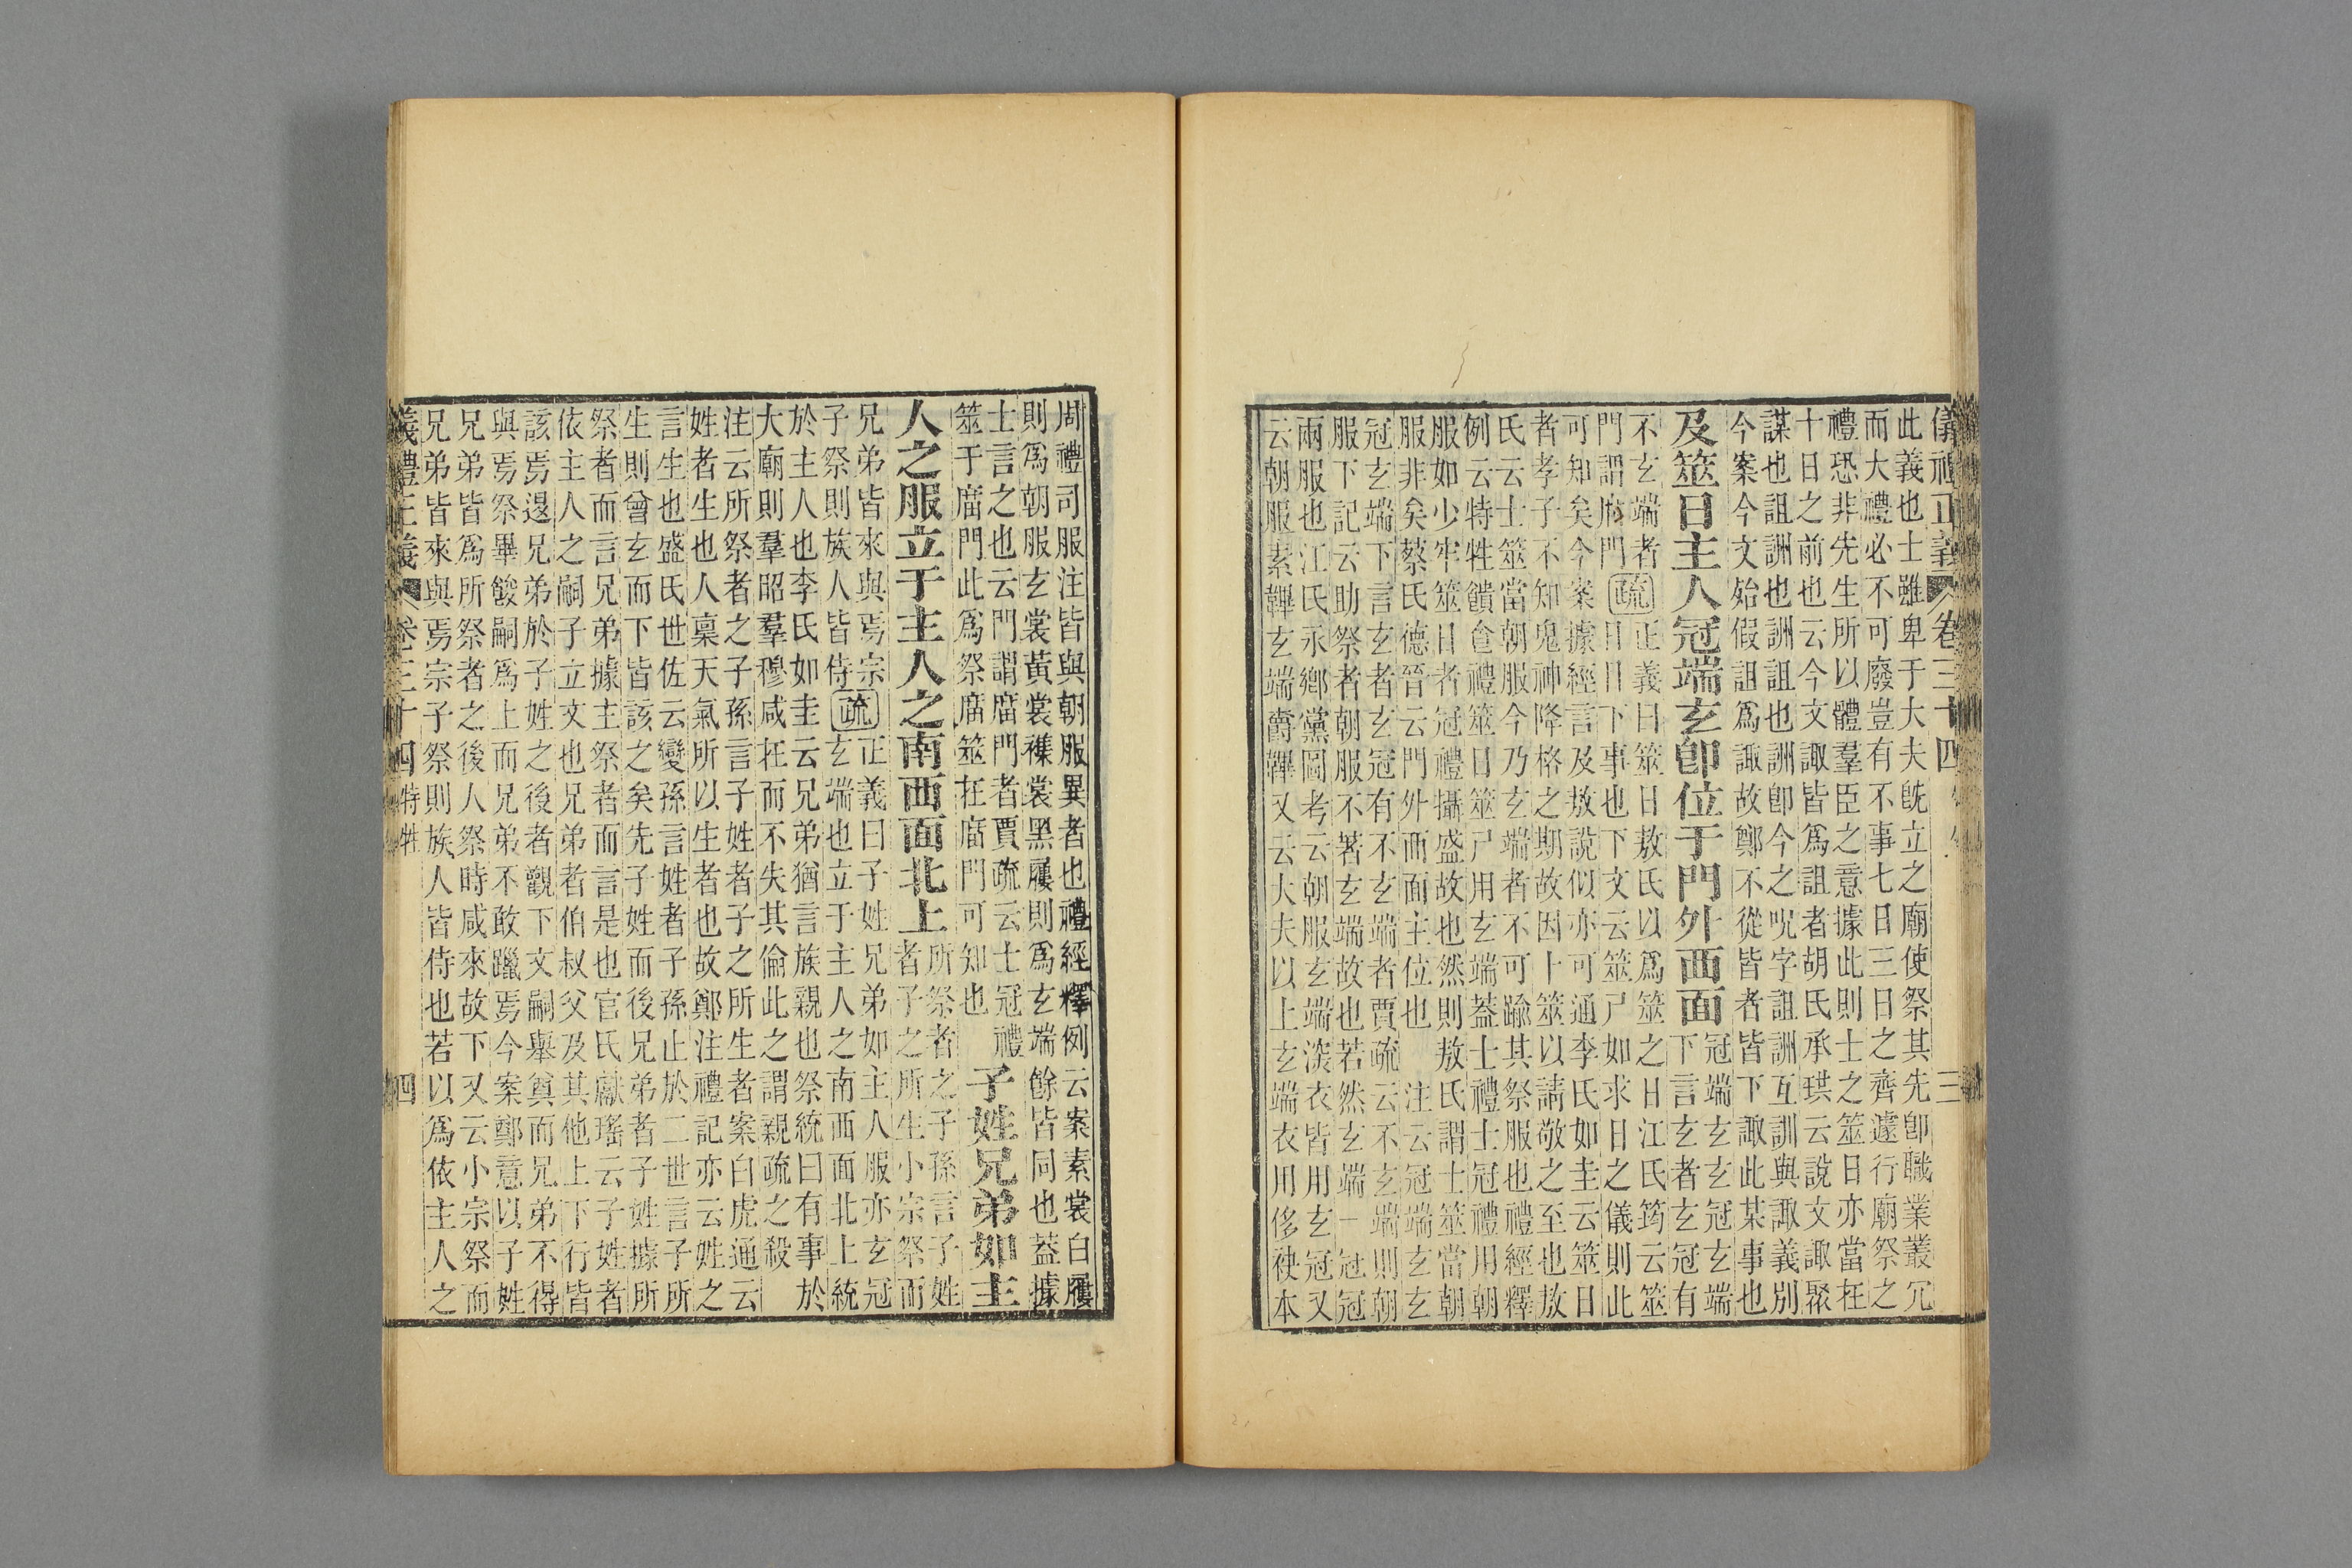 儀禮正義 卷三十四 三
此義也士雖卑于大夫旣立之廟使祭其先卽職業叢冗
而大禮必不可廢豈有不事七日三日之齊遽行廟祭之
禮恐非先生所以體羣臣之意據此則士之筮日亦當在
十日之前也云今文諏皆爲詛者胡氏承珙云說文諏聚
謀也詛詶也詶詛也詶卽今之呪字詛詶互訓與諏義別
今案今文始假詛爲諏故鄭不從皆者皆下諏此某事也
及筮日主人冠端玄卽位于門外西面
冠端玄玄冠玄端
下言玄者玄冠有
不玄端者
門謂廟門
疏
正義曰筮日敖氏以爲筮之日江氏筠云筮
日日下事也下文云筮尸如求日之儀則此
可知矣今案據經言及敖說似亦可通李氏如圭云筮日
者孝子不知鬼神降格之期故因卜筮以請敬之至也敖
氏云士筮當朝服今乃玄端者不可踰其祭服也禮經釋
例云特牲饋食禮筮日筮尸用玄端蓋士禮士冠禮用朝
服如少牢筮日者冠禮攝盛故也然則敖氏謂士筮當朝
服非矣蔡氏德晉云門外西面主位也 注云冠端玄玄
冠玄端下言玄者玄冠有不玄端者賈疏云不玄端則朝
服下記云助祭者朝服不著玄端故也若然玄端一冠冠
兩服也江氏永鄉黨圖考云朝服玄端深衣皆用玄冠又
云朝服素韠玄端爵韠又云大夫以上玄端衣用侈袂本
周禮司服注皆與朝服異者也禮經釋例云案素裳白屨
則爲朝服玄裳黃裳襍裳黑屨則爲玄端餘皆同也蓋據
士言之也云門謂廟門者賈疏云士冠禮
筮于廟門此爲祭廟筮在廟門可知也
子姓兄弟如主
人之服立于主人之南西面北上
所祭者之子孫言子姓
者子之所生小宗祭而
兄弟皆來與焉宗
子祭則族人皆侍
疏
正義曰子姓兄弟如主人服亦玄冠
玄端也立于主人之南西面北上統
於主人也李氏如圭云兄弟猶言族親也祭統曰有事於
大廟則羣昭羣穆咸在而不失其倫此之謂親疏之殺
注云所祭者之子孫言子姓者子之所生者案白虎通云
姓者生也人稟天氣所以生者也故鄭注禮記亦云姓之
言生也盛氏世佐云變孫言姓者子孫止於二世言子所
生則曾玄而下皆該之矣先子姓而後兄弟者子姓據所
祭者而言兄弟據主祭者而言是也官氏獻瑤云子姓者
依主人之嗣子立文也兄弟者伯叔父及其他上下行皆
該焉邊兄弟於子姓之後者觀下文嗣舉奠而兄弟不得
與焉祭畢餕嗣爲上而兄弟不敢躐焉今案鄭意以子姓
兄弟皆爲所祭者之後人祭時咸來故下又云小宗祭而
兄弟皆來與焉宗子祭則族人皆侍也若以爲依主人之
義禮正義 卷三十四 特牲 四